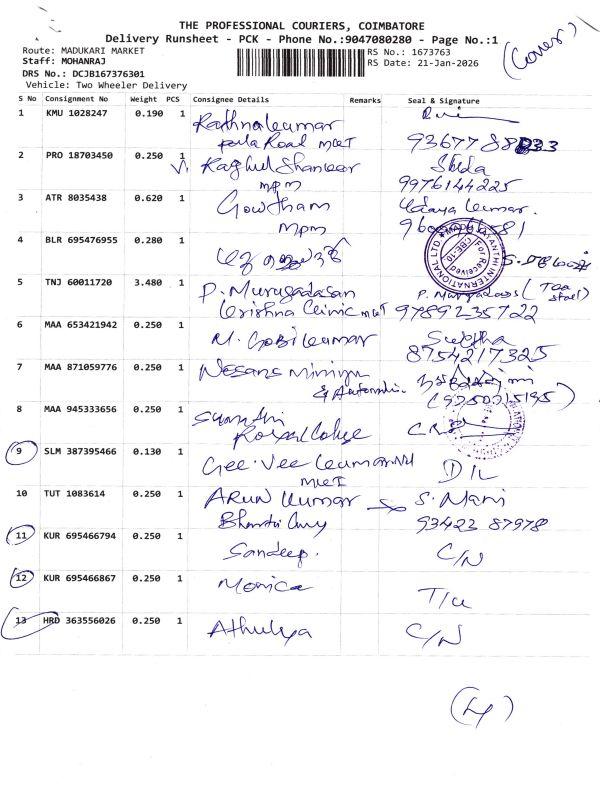 THE PROFESSIONAL COURIERS, COIMBATORE
Delivery Runsheet - PCK - Phone No.:9047080280 - Page No.:1
(Cover)
Route: MADUKARI MARKET
RS No.: 1673763
Staff: MOHANRAJ
RS Date: 21-Jan-2026
DRS No.: DCJB167376301
Vehicle: Two Wheeler Delivery
S No Consignment No Weight PCS Consignee Details Remarks Seal & Signature
1 KMU 1028247 0.190 1 Rathnakumar
Road MKT 93677
2 PRO 18703450 0.250 1 Raghul Shankar
MPM 9976144225
3 ATR 8035438 0.620 1 Gowtham Udaya Kumar.
MPM
4 BLR 695476955 0.280 1
5 TNJ 60011720 3.480 1 P. Murugadasan P. Murugadoss (Tea Stall)
Krishna Clinic MKT 9789235722
6 MAA 653421942 0.250 1 M. Gobikumar
8754217325
7 MAA 871059776 0.250 1
& Automation. (9350015195)
8 MAA 945333656 0.250 1
College
9 SLM 387395466 0.130 1 Gee Vee D/L
MKT
10 TUT 1083614 0.250 1 ARUN Kumar S. Mani
93423 87978
11 KUR 695466794 0.250 1 Sandeep. C/N
12 KUR 695466867 0.250 1 Monica T/U
13 HRD 363556026 0.250 1 Athulya C/N
(4)